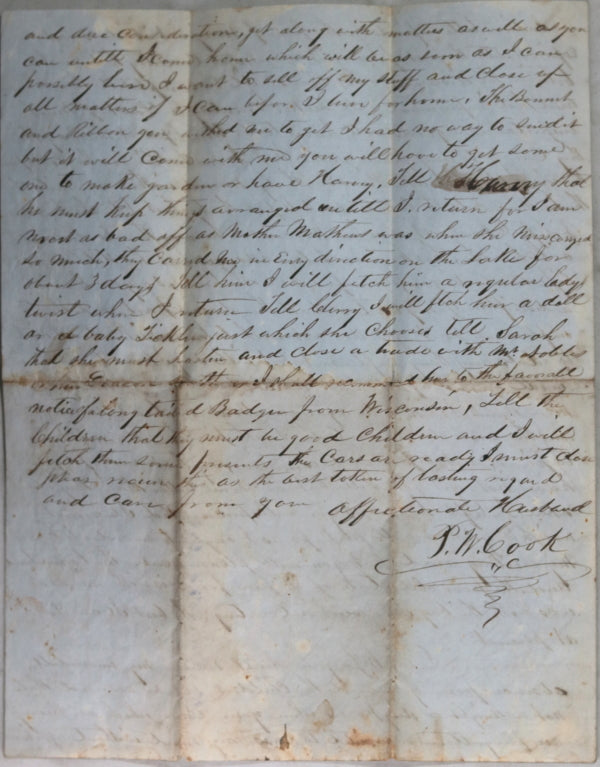 and due consideration, get along with matters as well as you
can untill I come home which will be as soon as I can
possibly turn I want to sell off my stuff and close up
all matters if I can before I turn for home, The Bonnet
and Ribbon you wished me to get I had no way to send it
but it will Come with me you will have to get some
one to make garden or have Harvy, Tell Harvy that
he must keep things arranged untill I return for I am
most as bad off as Mother Mathews was when she miscarried
so much, they Carried me in Evry direction on the Lake for
about 3 days Tell him I will fetch him a regular ladys
twist when I return Tell I will fetch him a doll
or a baby just which she chooses tell Sarah
that she must hasten and close a trade with Mr. Nobles
or I shall recommend her to the favorable
notice of a long tail d Badger from Wisconsin, Tell the
Children that they must be good Children and I will
fetch them some presents, the Cars are ready I must close
pleas receive this as the best token of lasting regard
and Care from your affectionate Husband
P. W. Cook